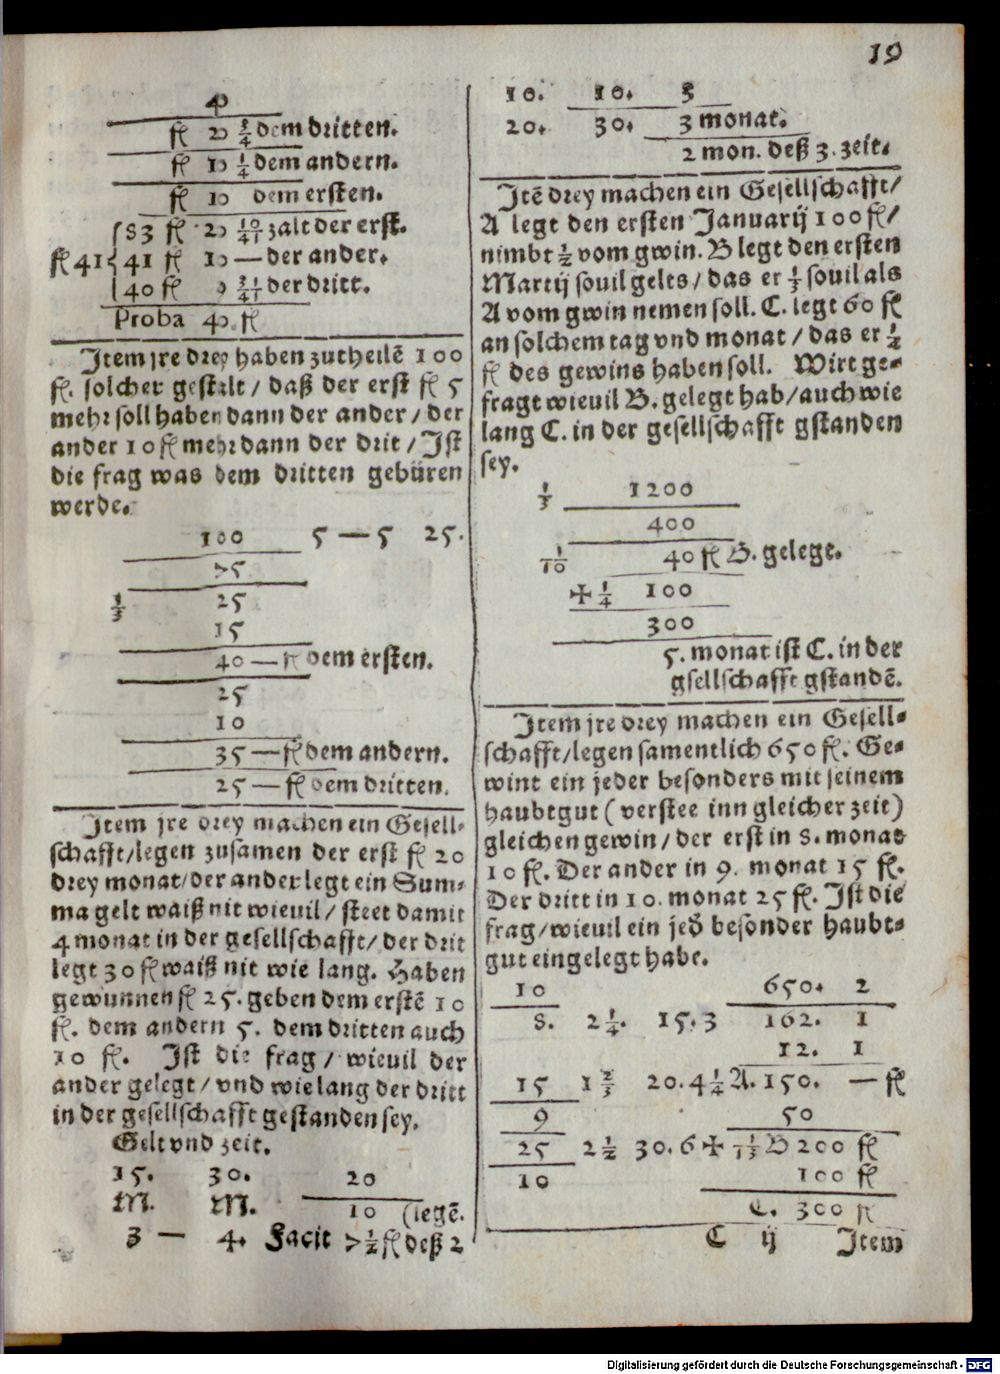 19
40
fl 20 3/4 dem dritten.
fl 10 1/4 dem andern.
fl 10 dem ersten.
83 fl 20 10/41 zalt der erst.
fl 41 { 41 fl 10 — der ander.
40 fl 9 31/41 der dritt.
Proba 40. fl
Item jre drey haben zutheilē 100
fl. solcher gestalt / daß der erst fl 5
mehr soll haben dann der ander / der
ander 10 fl mehr dann der drit / Ist
die frag was dem dritten gebüren
werde.
100 5 — 5 25.
75
1/3 25
15
40 — fl dem ersten.
25
10
35 — fl dem andern.
25 — fl dem dritten.
Item jre drey machen ein Gesell-
schafft/legen zusamen der erst fl 20
drey monat/der ander legt ein Sum-
ma gelt waiß nit wieuil / steet damit
4 monat in der gesellschafft/ der drit
legt 30 fl waiß nit wie lang. Haben
gewunnen fl 25. geben dem erstē 10
fl. dem andern 5. dem dritten auch
10 fl. Ist die frag / wieuil der
ander gelegt / vnd wie lang der dritt
in der gesellschafft gestanden sey.
Gelt vnd zeit.
15. 30. 20
M. M. 10 (legē.
3 — 4. Facit 7 1/2 fl deß 2
10. 10. 5
20. 30. 3 monat.
2 mon. deß 3. zeit.
Itē drey machen ein Gesellschafft/
A legt den ersten Januarij 100 fl/
nimbt 1/2 vom gwin. B legt den ersten
Martij souil gelts / das er 1/3 souil als
A vom gwin nemen soll. C. legt 60 fl
an solchem tag vnd monat / das er 1/2
fl des gewins haben soll. Wirt ge-
fragt wieuil B. gelegt hab/auch wie
lang C. in der gesellschafft gstanden
sey.
1/3 1200
400
1/10 40 fl B. gelegt.
✠ 1/4 100
300
5. monat ist C. in der
gsellschafft gstandē.
Item jre drey machen ein Gesell-
schafft/legen samentlich 650 fl. Ge-
wint ein jeder besonders mit seinem
haubtgut ( verstee inn gleicher zeit)
gleichen gewin / der erst in 8. monat
10 fl. Der ander in 9. monat 15 fl.
Der dritt in 10. monat 25 fl. Ist die
frag/wieuil ein jed̄ besonder haubt-
gut eingelegt habe.
10 650. 2
8. 2 1/4. 15. 3 162. 1
12. 1
15 1 2/3 20. 4 1/4 A. 150. — fl
9 50
25 2 1/2 30. 6 ✠ 1/13 B 200 fl
10 100 fl
C. 300 fl
C ij Item
Digitalisierung gefördert durch die Deutsche Forschungsgemeinschaft - DFG